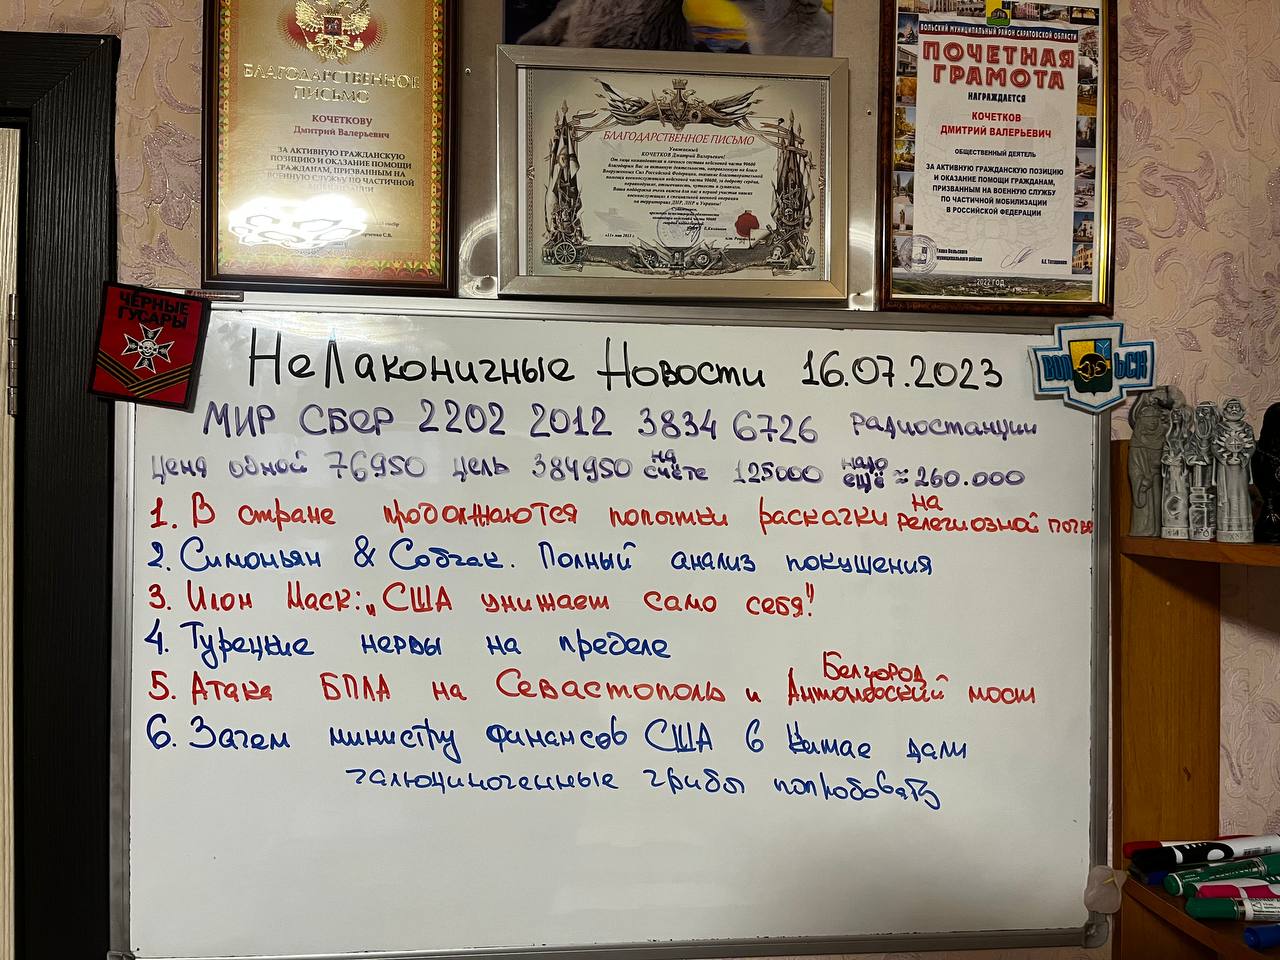 БЛАГОДАРСТВЕННОЕ
ПИСЬМО
КОЧЕТКОВУ
Дмитрий Валерьевич
ЗА АКТИВНУЮ ГРАЖДАНСКУЮ
ПОЗИЦИЮ И ОКАЗАНИЕ ПОМОЩИ
ГРАЖДАНАМ, ПРИЗВАННЫМ НА
ВОЕННУЮ СЛУЖБУ ПО ЧАСТИЧНОЙ
БЛАГОДАРСТВЕННОЕ ПИСЬМО
Уважаемый
КОЧЕТКОВ Дмитрий Валерьевич!
От лица командования и личного состава войсковой части 90600
ВОЛЬСКИЙ МУНИЦИПАЛЬНЫЙ РАЙОН САРАТОВСКОЙ ОБЛАСТИ
ПОЧЕТНАЯ
ГРАМОТА
НАГРАЖДАЕТСЯ
КОЧЕТКОВ
ДМИТРИЙ ВАЛЕРЬЕВИЧ
ОБЩЕСТВЕННЫЙ ДЕЯТЕЛЬ
ЗА АКТИВНУЮ ГРАЖДАНСКУЮ ПОЗИЦИЮ
И ОКАЗАНИЕ ПОМОЩИ ГРАЖДАНАМ,
ПРИЗВАННЫМ НА ВОЕННУЮ СЛУЖБУ
ПО ЧАСТИЧНОЙ МОБИЛИЗАЦИИ
В РОССИЙСКОЙ ФЕДЕРАЦИИ
Глава Вольского
муниципального района
2022 ГОД
ЧЁРНЫЕ
ГУСАРЫ
ВОЛЬСК
НеЛаконичные Новости 16.07.2023
МИР СБЕР 2202 2012 3834 6726 радиостанции
цена одной 76950 цель 384950 на счёте 125000 надо ещё ≈ 260.000
1. В стране продолжаются попытки раскачки на религиозной почве
2. Симоньян & Собчак. Полный анализ покушения
3. Илон Маск: „США унижает само себя!"
4. Турецкие нервы на пределе
5. Атака БПЛА на Севастополь и Белгород Антоновский мост
6. Зачем министру финансов США в Китае дали
галюциногенные грибы попробовать